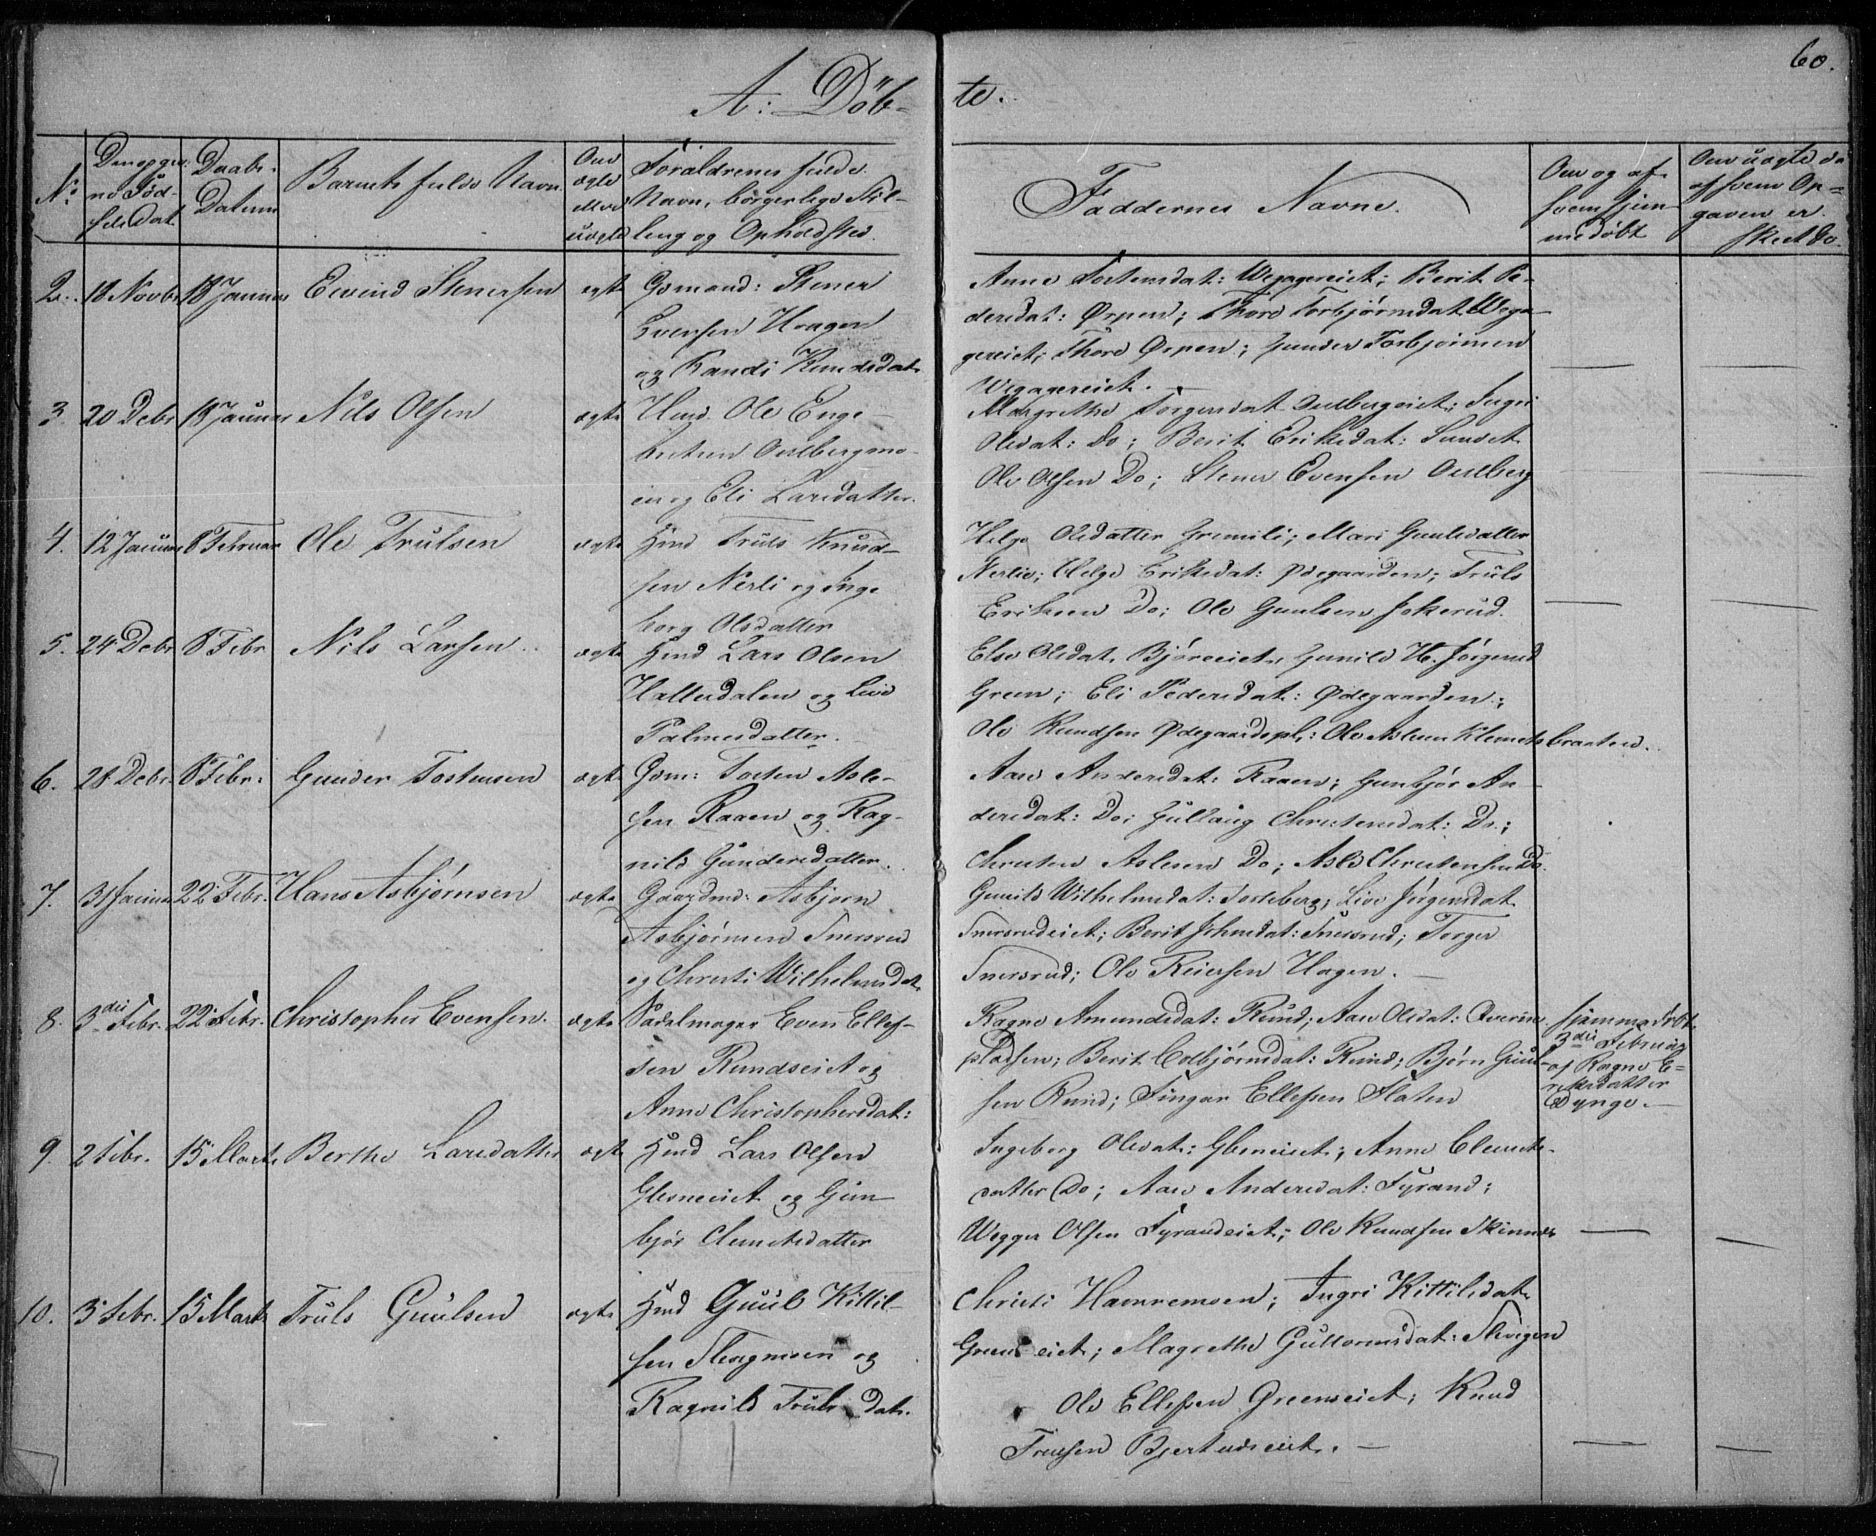 60.
A: Döb-
te.
No
Den opgiv-
ne Fød-
sels Dat.
Daabs-
Datum
Barnets fulde Navn
Om
ægte
eller
uægte
Forældrenes fulde
Navn, borgerlige Stil-
ling og Opholdsted.
Faddernes Navne.
Om og af
hvem hjem-
medøbt
Om uægte da
af hvem Op-
gaven er
skeet &c.
2. 18 Novbr 18 Januar Eivind Stenersen egte Gomand: Stener
Evensen Haagen
og Randi Knudsdat.
Anne Tostensdat: Wegagereiet; Berit Pe-
dersdat: Ørpen; Thore Torbjørnsdat Wega-
gereiet; Thore Ørpen; Gunder Torbjørnsen
Wegagereiet.
3. 20 Debr 18 Januar Nils Olsen ægte Hmd. Ole Enge-
bretsen Oulbergmo-
en og Eli Larsdatter.
Margrethe Torgersdat Oulbergeiet; Ingri
Olsdat: Do; Berit Eriksdat:
Ole Olsen Do; Stener Evensen Oulberg
4. 12 Januar 8 Februar Ole Trulsen ægte Hmd Truls Knud-
sen Nerli og Inge-
borg Olsdatter
Helge Olsdatter Gremili; Mari Guulsdatter
Nerlie; Helge Eriksdat: Ødegaarden; Truls
Eriksen Do; Ole Guulsen Jokerud.
5. 24 Debr 8 Febr Nils Larsen ægte Hmd Lars Olsen
Hallesdalen og Live
Palmesdatter.
Else Olsdat. Bjøreeiet, Gunild H. Jørgensd
Green; Eli Pedersdat: Ødegaarden;
Ole Knudsen Ødegaardspl.: Ole Aslesen Klemetsbraaten.
6. 28 Debr. 8 Febr. Gunder Tostensen ægte Gom: Tosten Asle-
sen Raaen og Rag-
nild Gundersdatter.
Aase Andersdat: Raaen; Gunbjør An-
dersdat: Do; Gullaug Christensdat: Do;
Christen Aslesen Do; Asle Christensen Do.
7. 31 Januar 22 Febr. Hans Asbjørnsen ægte Gaardmd: Asbjørn
Asbjørnsen Snersrud
og Christi Wilhelmsdat.
Gunild Wilhelmsdat: Torleberg; Live Jørgensdat
Snersrudeiet; Berit Johnsdat: Snersrud; Torger
Snersrud; Ole Reiersen Hagen.
8. 3die Febr. 22 Febr. Christopher Evensen. ægte Sadelmager Even Ellef-
sen Rundseiet og
Anne Christophersdat:
Ragne Amundsdat: Rund; Aase Olsdat:
pladsen; Berit Colbjørnsdat: Rund; Bjørn Guul-
sen Rund; Fingar Ellefsen Flaten
hjemmedøbt
3die Februar
af Ragne E-
riksdatter
Dynge.
9. 2 Febr. 15 Marts Berthe Larsdatter ægte Hmd Lars Olsen
Glesneeiet og Gun-
bjør Clemetsdatter
Ingeborg Olsdat: Glesneeiet; Anne Clemets-
datter Do; Aase Andersdat: Fyrand;
Wegger Olsen Fyrandeiet; Ole Knudsen Skinnes
10. 3 Febr. 15 Marts Truls Guulsen ægte Hmd Guul Kittil-
sen Skagmoen og
Ragnild Trulsdat.
Christi Hammemoen; Ingri Kittilsdat.
Greenseiet; Magrethe Guttormsdat: Skvigen
Ole Ellefsen Greenseiet; Knud
Trulsen Bjertnæseiet.